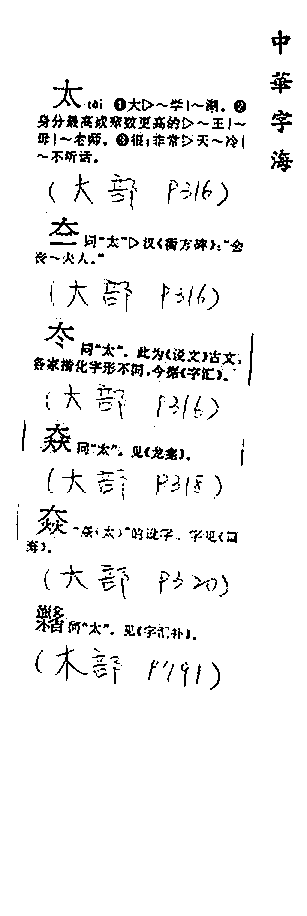 中華字海
太 tài ❶大▷～学｜～湖。❷
身分最高或辈数更高的▷～王｜～
母｜～老师。❸很；非常▷天～冷｜
～不听话。
(大部 P316)
夳 同“太”▷汉《衡方碑》：
(大部 P316)
夳 同“太”。此为《说文》古文，
各家楷化字形不同，今据《字汇》。
(大部 P316)
同“太”。见《龙龛》。
(大部 P318)
(太)”的讹字。字见
(大部 P320)
同“太”。见《字汇补》。
(木部 P791)